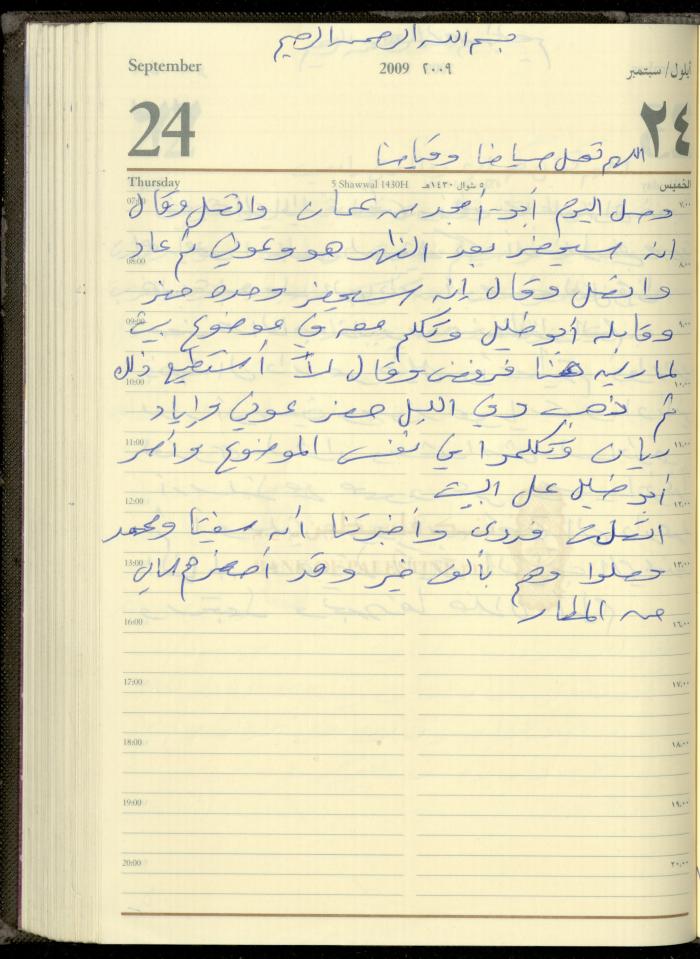 بسم الله الرحمن الرحيم
September 2009 ٢٠٠٩ أيلول/ سبتمبر
24 ٢٤
اللهم تقبل صيامنا وقيامنا
Thursday 5 Shawwal 1430H ٥ شوال ١٤٣٠هـ الخميس
07:00 وصل اليوم أبو أمجد من عمان واتصل وقال ٧,٠٠
انه سيحضر بعد الظهر هو وعوني ثم عاد
08:00 ٨,٠٠
واتصل وقال إنه سيحضر وحده حضر
09:00 وقابله أبو خليل وتكلم معه في موضوع بيت ٩,٠٠
هنا فرفض وقال لا أستطيع ذلك
10:00 ١٠,٠٠
ثم ذهب وفي الليل حضر عوني وإياد
11:00 ريان وتكلموا في نفس الموضوع وأصر ١١,٠٠
أبو خليل على البيت
12:00 ١٢,٠٠
اتصلت فدوى وأخبرتنا أنه ومحمد
13:00 وصلوا وهم بألف خير وقد أحضرهم ١٣,٠٠
من المطار
16:00 ١٦,٠٠
17:00 ١٧,٠٠
18:00 ١٨,٠٠
19:00 ١٩,٠٠
20:00 ٢٠,٠٠